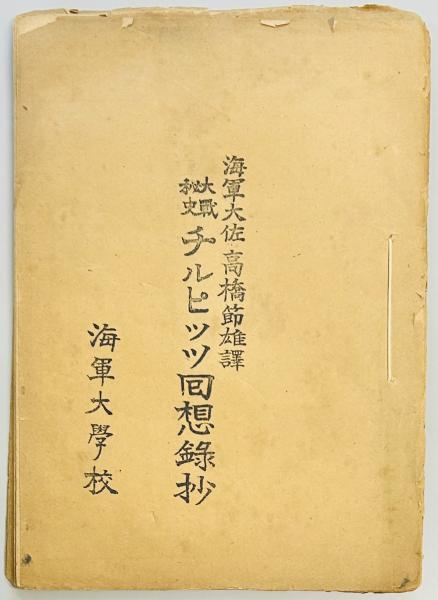 海軍大佐 高橋節雄譯
大戰秘史 チルピッツ回想錄抄
海軍大學校